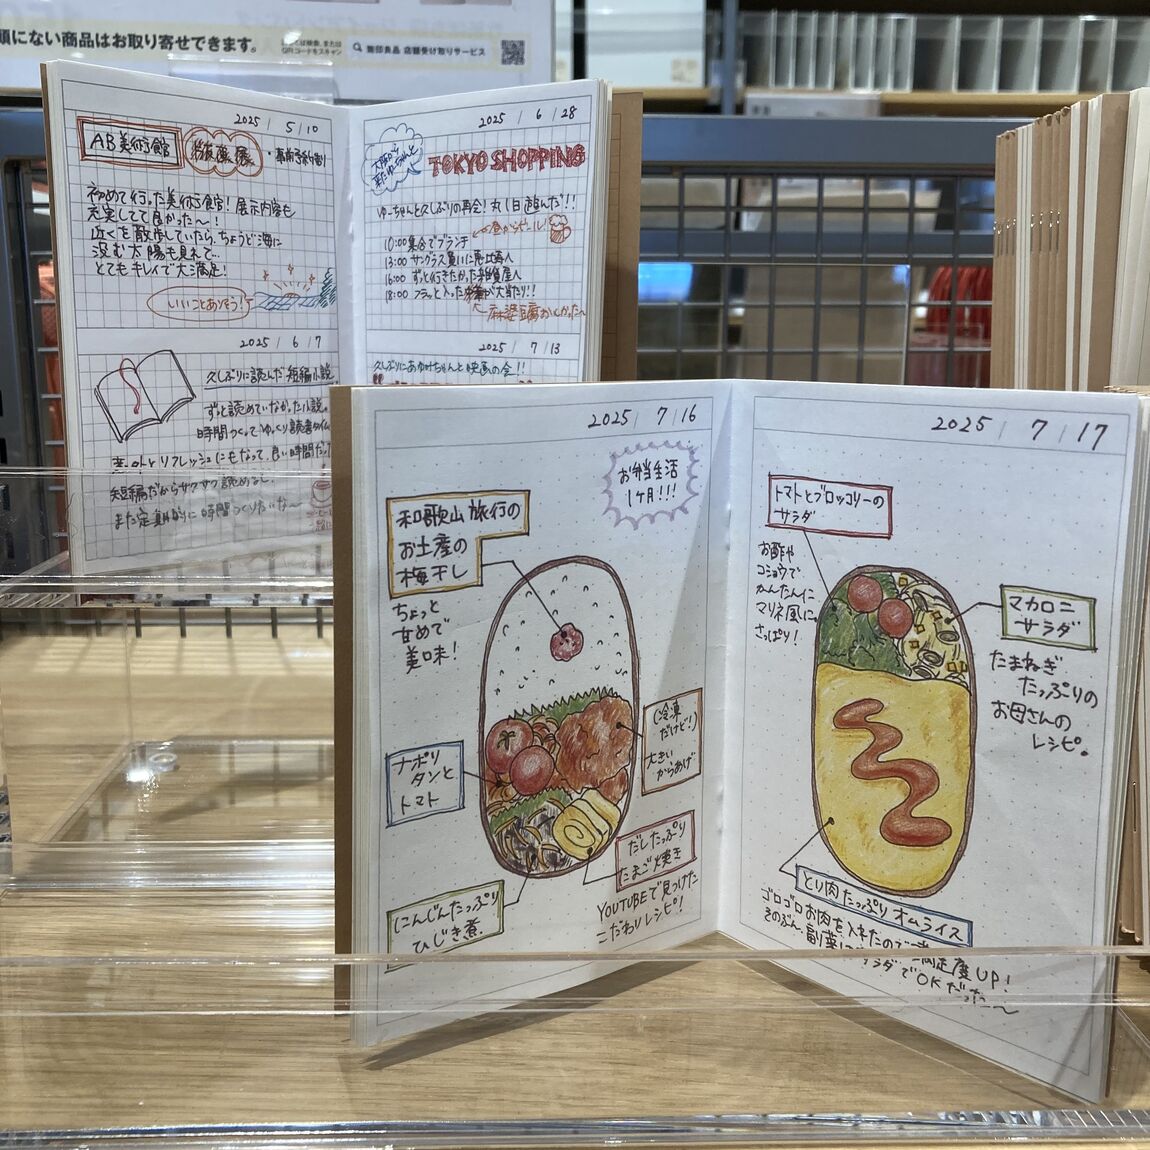 頭にない商品はお取り寄せできます。
無印良品 店舗受け取りサービス
2025 / 5 / 10
AB美術館
展
・事前予約制
初めて行った美術館！展示内容も
充実してて良かった〜！
近くを散歩していたら、ちょうど海に
沈む太陽も見れて…
とてもキレイで大満足！
いいことありそう！
2025 / 6 / 7
久しぶりに読んだ短編小説
ずっと読めていなかった小説。
時間つくってゆっくり読書タイム
意外とリフレッシュにもなって、良い時間だった
短編だからサクサク読めるし、
また定期的に時間つくりたいな〜
2025 / 6 / 28
大阪から
来たゆーちゃんと
TOKYO SHOPPING
ゆーちゃんと久しぶりの再会！丸1日遊んだ！！
10:00 集合でブランチ
昼からビール！
13:00 サングラス買いに恵比寿へ
16:00 ずっと行きたかった雑貨屋へ
18:00 フラッと入った が大当たり！！
麻婆豆腐おいしかった〜
2025 / 7 / 13
久しぶりにあゆみちゃんと映画の会！！
2025 / 7 / 16
お弁当生活
1ヶ月！！！
和歌山旅行の
お土産の
梅干し
ちょっと
甘めで
美味！
ナポリ
タンと
トマト
(冷凍
だけど)
大きい
からあげ
だしたっぷり
たまご焼き
YOUTUBEで見つけた
こだわりレシピ！
にんじんたっぷり
ひじき煮
2025 / 7 / 17
トマトとブロッコリーの
サラダ
お酢や
コショウで
かんたんに
マリネ風に。
さっぱり！
マカロニ
サラダ
たまねぎ
たっぷりの
お母さんの
レシピ。
とり肉たっぷりオムライス
ゴロゴロお肉を入れたので
満足度UP！
そのぶん、副菜は
サラダでOKだった〜